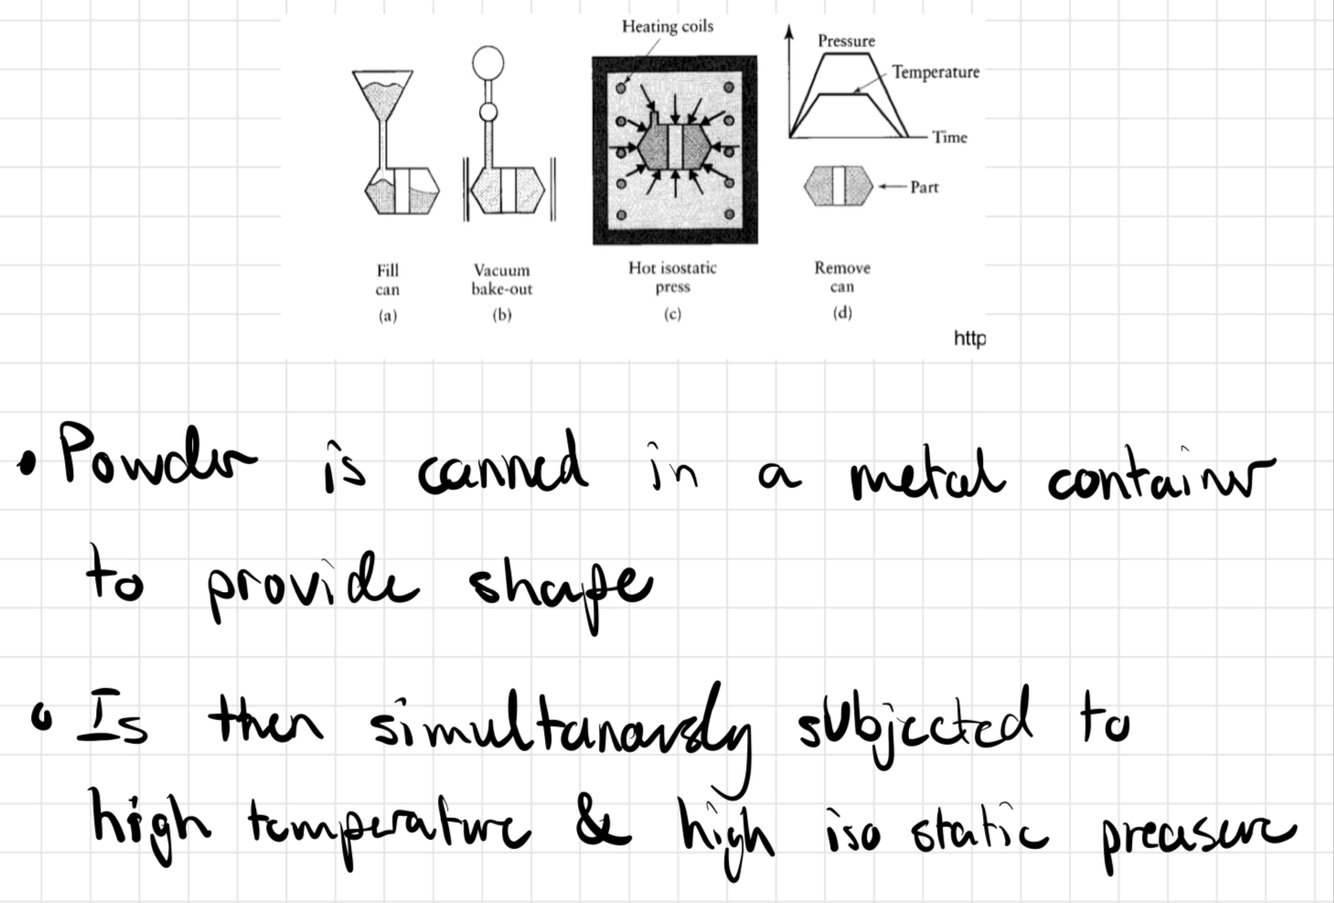 Heating coils
Pressure
Temperature
Time
Part
Fill
can
(a)
Vacuum
bake-out
(b)
Hot isostatic
press
(c)
Remove
can
(d)
http
• Powder is canned in a metal container
to provide shape
• Is then simultanously subjected to
high temperature & high iso static preasure